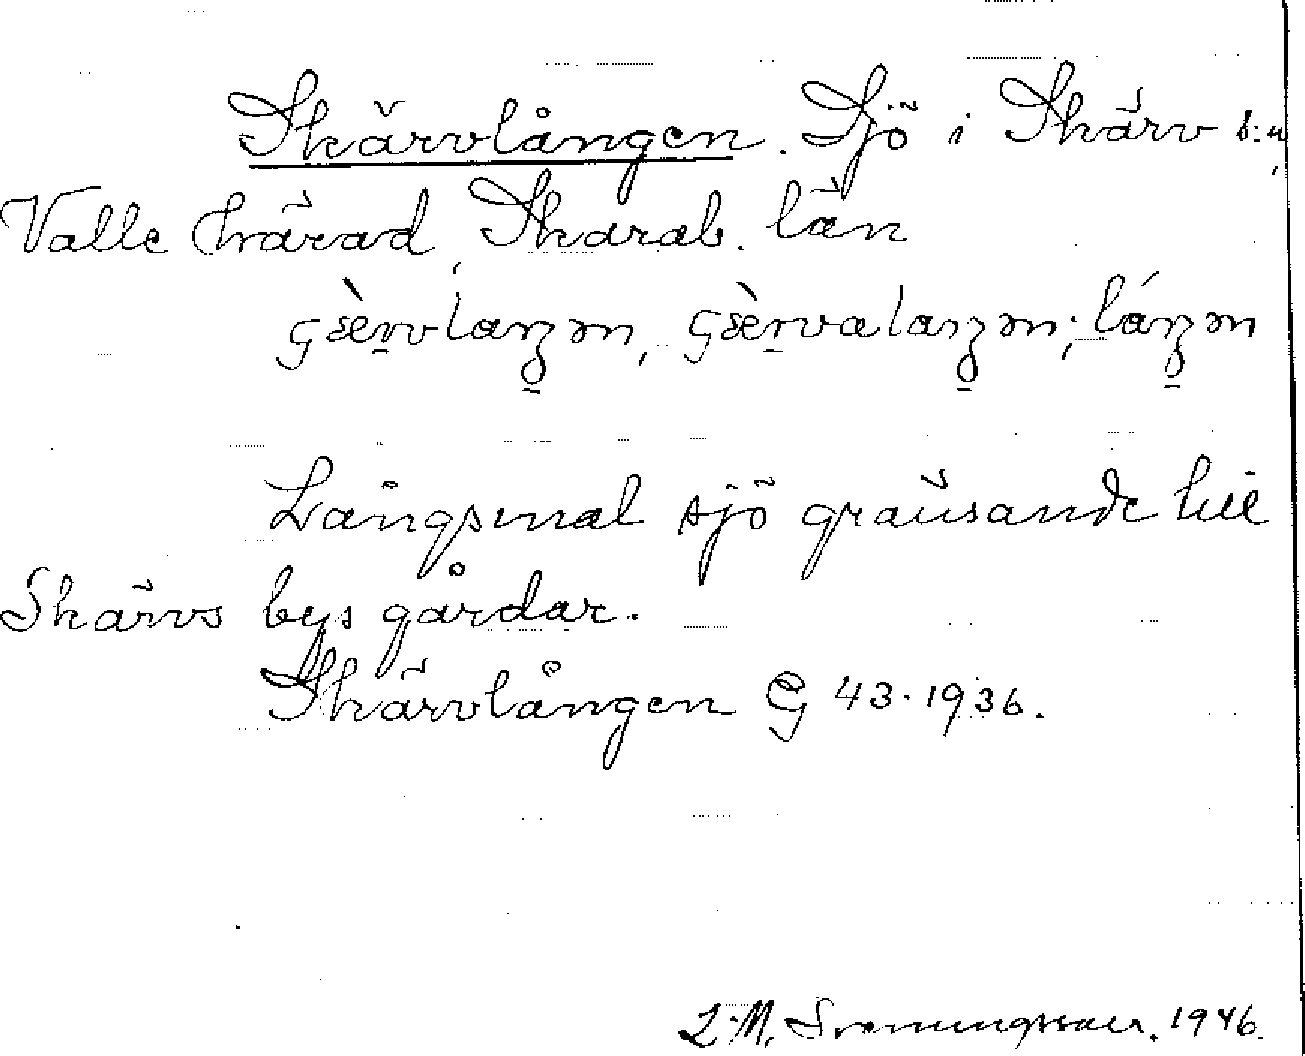 Skärvlången. Sjö i Skärv s:n,
Valle härad, Skarab. län
Långsmal sjö gränsande till
Skärvs bys gårdar.
Skärvlången G 43. 1936.
1946.